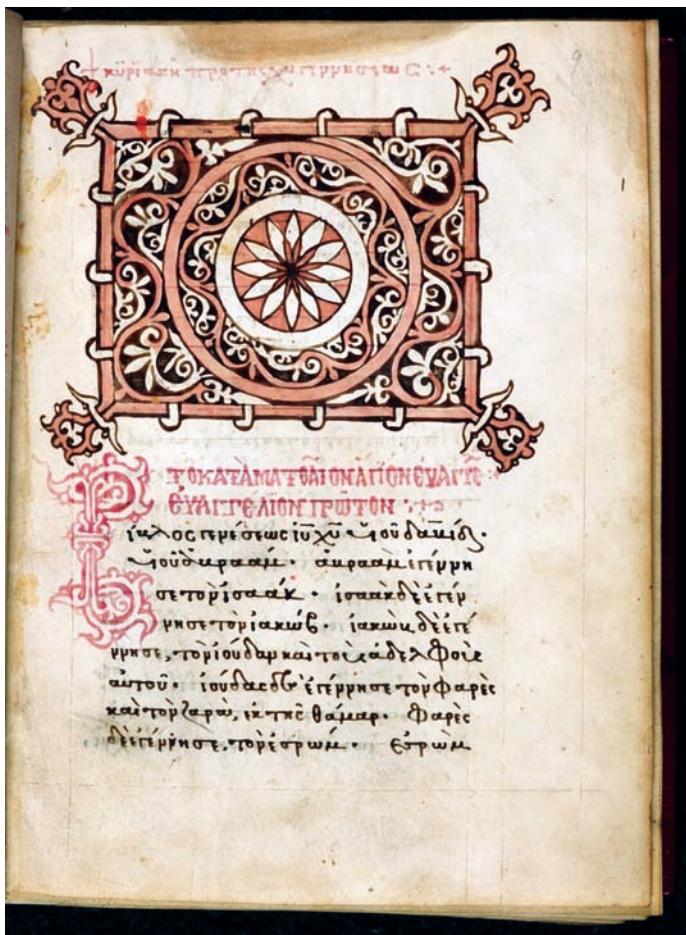 + κυριακὴ πρὸ τῆς χυ γεννήσεως :+
9
ΤΟ ΚΑΤᾺ ΜΑΤΘΑῖΟΝ ΑΓΙΟΝ ΕΥΑΓΓΕ
ΕΥΑΓΓΕΛΙΟΝ ΠΡῶΤΟΝ
Βίβλος γενέσεως ἰυ χυ υἱοῦ δαυίδ.
υἱοῦ ἀβραάμ. ἀβραὰμ ἐγέννη
σε τὸν ἰσαάκ. ἰσαὰκ δὲ ἐγέν
νησε τὸν ἰακώβ. ἰακὼβ δὲ ἐγέ
ννησε, τὸν ἰούδαν καὶ τοὺς ἀδελφοὺς
αὐτοῦ. ἰούδας δὲ ἐγέννησε τὸν φαρὲς
καὶ τὸν ζαρὰ, ἐκ τῆς θάμαρ. φαρὲς
δὲ ἐγέννησε, τὸν ἐσρώμ. ἐσρὼμ